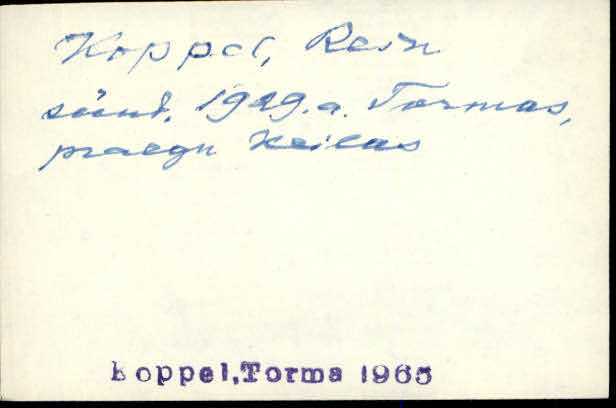 Koppel, Rein
sünd. 1929.a. Tormas,
praegu Keilas
Koppel,Torma 1965